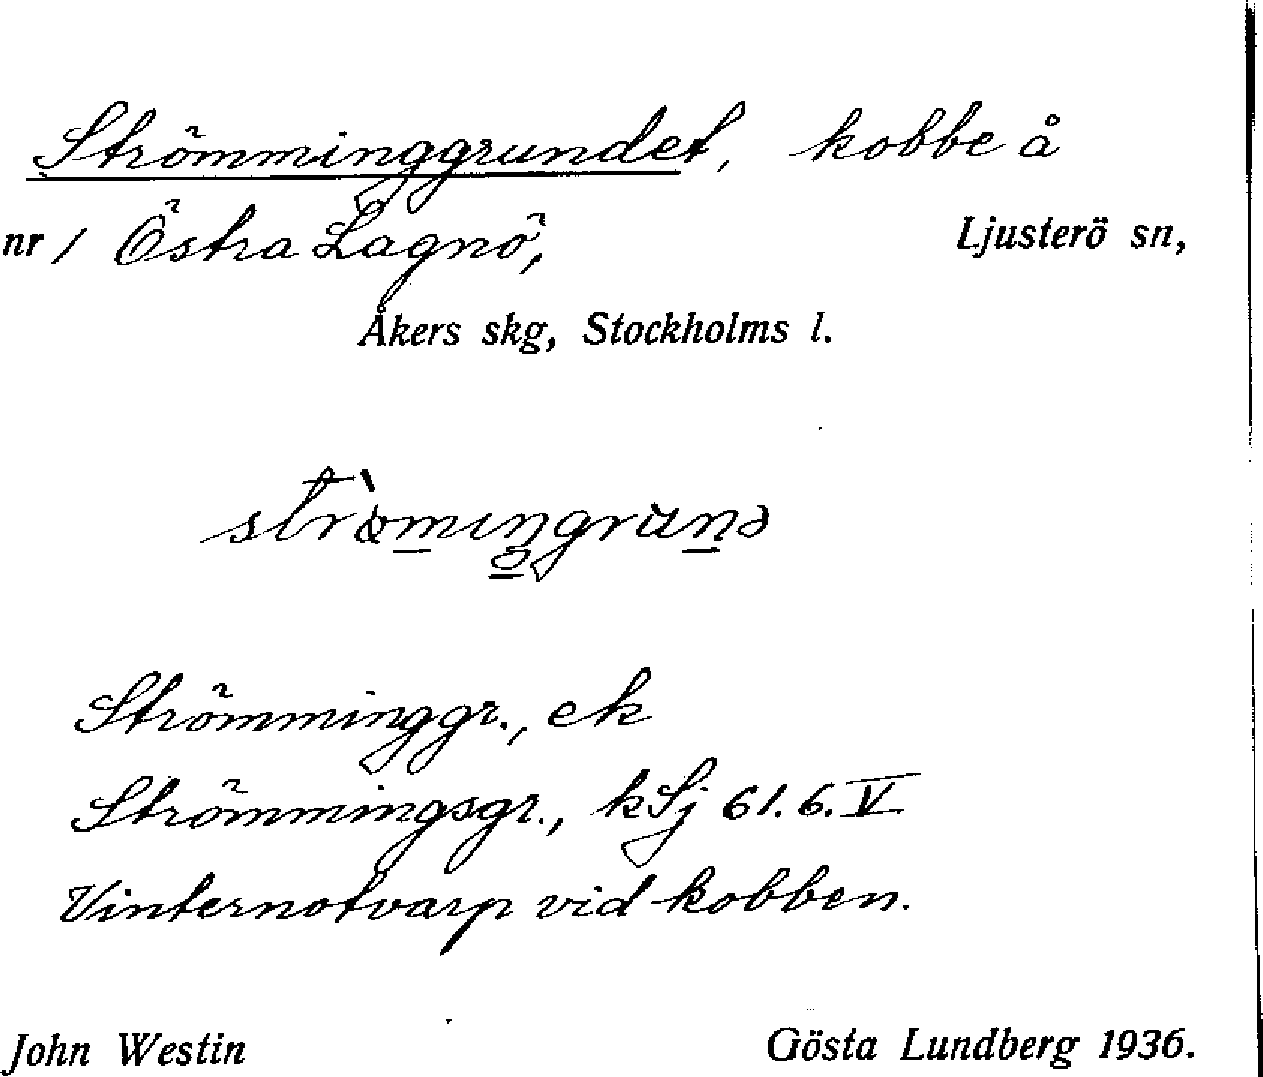 Strömminggrundet, kobbe å
nr 1 Östra Lagnö, Ljusterö sn,
Åkers skg, Stockholms l.
Strömminggr., ek
Strömmingsgr., kSj 61.6.V
Vinternotvarp vid kobben.
John Westin Gösta Lundberg 1936.